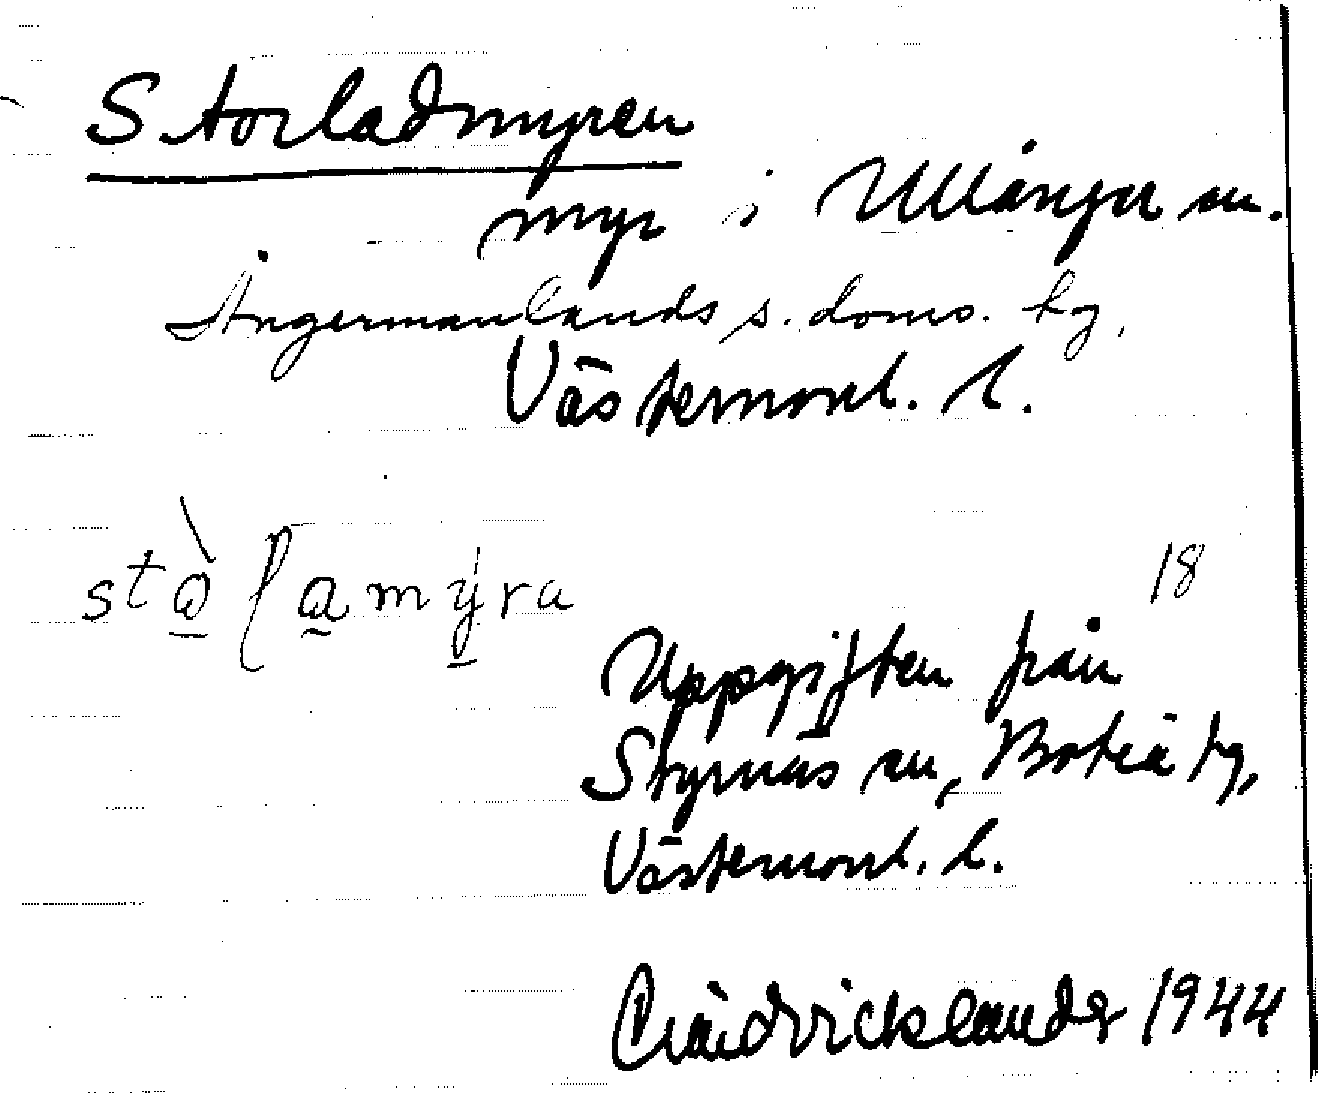 Storladmyren
myr i Ullånger sn.
Ångermanlands s. doms. hg,
Västernorrl. l.
stò̱ḷa̱mý̱ra
18
Uppgiften från
Styrnäs sn, Boteå tg,
Västernorrl. l.
1944